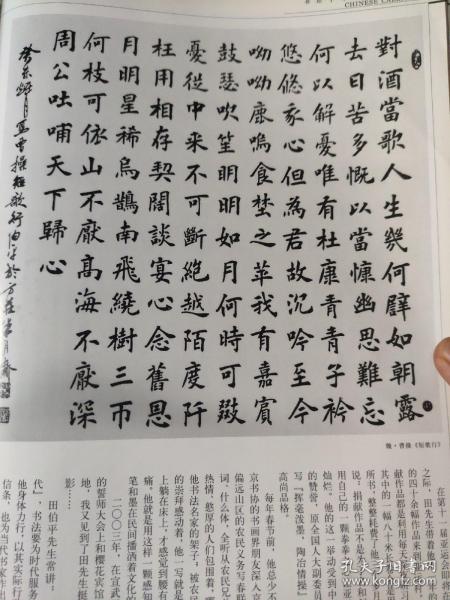 CHINESE CAL
對酒當歌人生幾何譬如朝露
去日苦多慨以當慷幽思難忘
何以解憂唯有杜康青青子衿
悠悠我心但為君故沉吟至今
呦呦鹿鳴食埜之苹我有嘉賓
鼓瑟吹笙明明如月何時可掇
憂從中来不可斷絶越陌度阡
枉用相存契闊談宴心念舊恩
月明星稀烏鵲南飛繞樹三帀
何枝可依山不厭高海不厭深
周公吐哺天下歸心
癸未 月 曹操短歌行 於方莊
魏·曹操《短歌行》
在第十一届亚运会即将在
之际，田先生带着他
四十多幅作品来到
献作品都是利用每天
其中的一幅八十米长
所书，整整耗费了他
说：捐献作品不是为
用自己的一颗拳拳
灿烂。他的这一举动受到中
的赞誉，原全国人大副委员
写“挥毫泼墨，陶冶情操”
高尚品格。
每年春节前，他总少不
京书协的书画界朋友深入
偏远山区的农民义务写春联
词，什么体，全听从农民兄
热情、憨厚的人们包围着，
他书法名家的架子；被农民
的崇拜感动着，他一写就是
上躺在床上，才感觉到
痛。他就是用这样一颗感恩
笔和墨在民间播洒着文化
二〇〇三年，在宣武
的誓师大会上和樱花宾馆
地，我又见到了田先生挺
影……
田伯平先生常讲，
代”，书法要为时代服务
他身体力行，以其实际行
信条，也为当代书画家